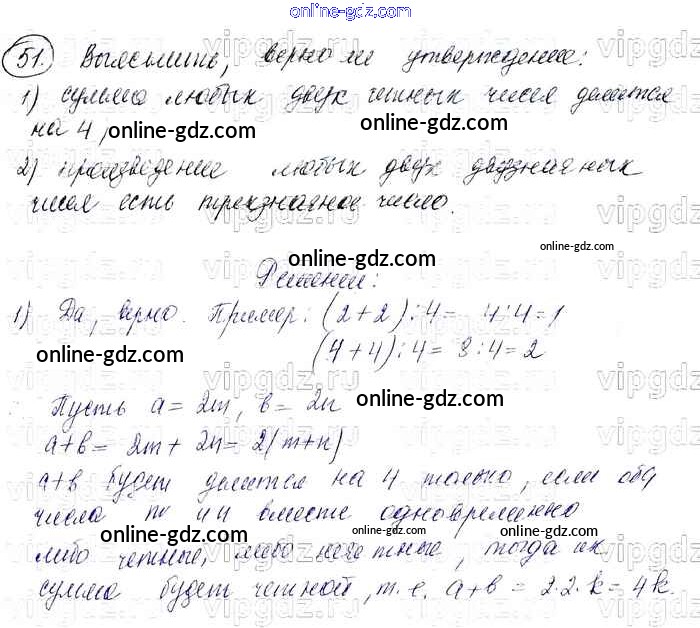 online-gdz.com
51. Выяснить, верно ли утверждение:
online-gdz.com
1) сумма любых двух четных чисел делится
на 4,
online-gdz.com
2) произведение любых двух двузначных
чисел есть трехзначное число.
online-gdz.com
online-gdz.com
Решение:
1) Да, верно. Пример: (2+2):4= 4:4=1
online-gdz.com
online-gdz.com
(4+4):4= 8:4=2
Пусть a= 2m, b= 2n
online-gdz.com
a+b= 2m+ 2n= 2(m+n)
a+b будет делится на 4 только, если оба
числа m и n вместе одновременно
online-gdz.com
online-gdz.com
online-gdz.com
либо четные, либо нечетные, тогда их
сумма будет четной, т.е. a+b = 2·2·k= 4k